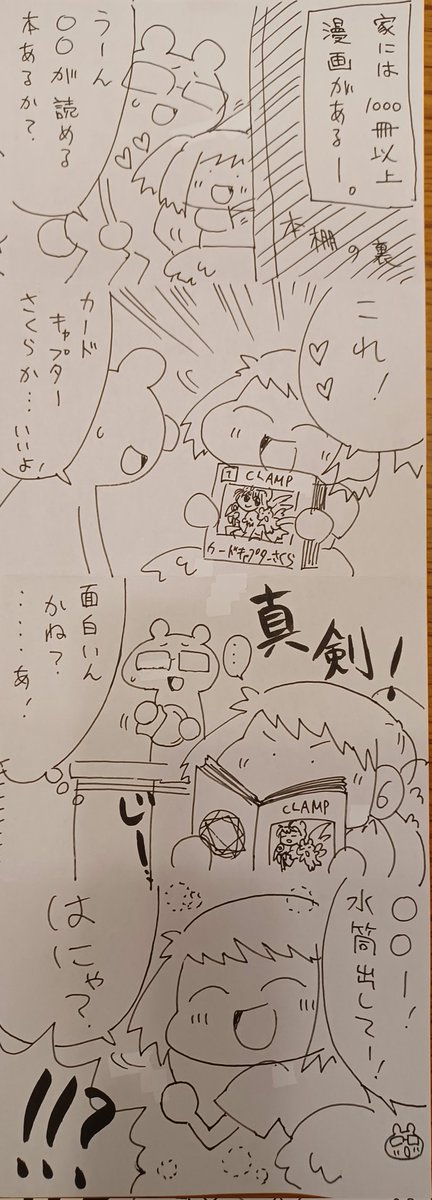 家には1000冊以上
漫画があるー。
うーん
〇〇が読める
本あるか？
本棚の裏
これ！
カード
キャプター
さくらか…いいよ！
1 CLAMP
カードキャプターさくら
真剣！
…
面白いん
かね？
……あ！
じーー
CLAMP
〇〇ー！
水筒出してー！
はにゃ？
!!!?